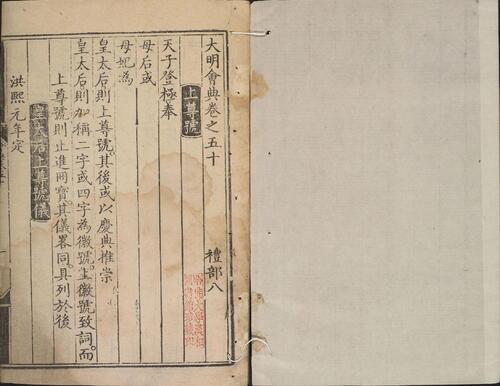 大明會典卷之五十
禮部八
上尊號
天子登極奉
母后或
母妃為
皇太后則上尊號其後或以慶典推崇
皇太后則加稱二字或四字為徽號上徽號致詞而
上尊號則止進冊寶其儀畧同具列於後
皇太后上尊號儀
洪熙元年定